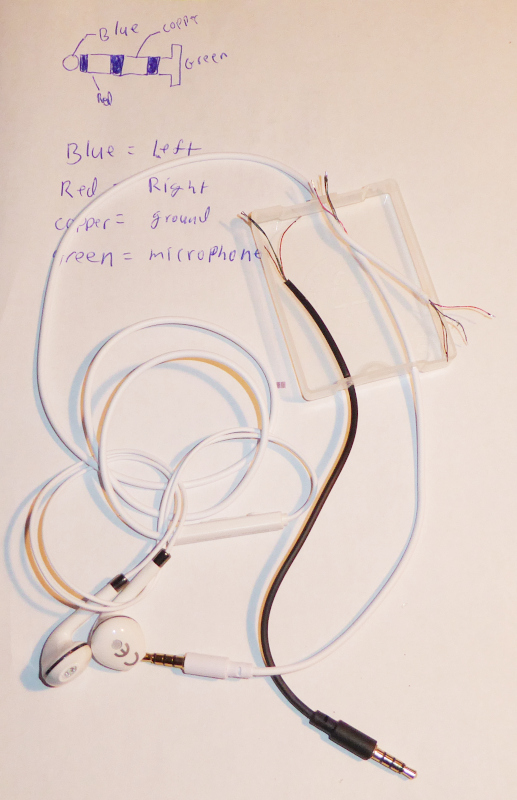 Blue
copper
Green
Red
Blue = Left
Red = Right
copper = ground
Green = microphone